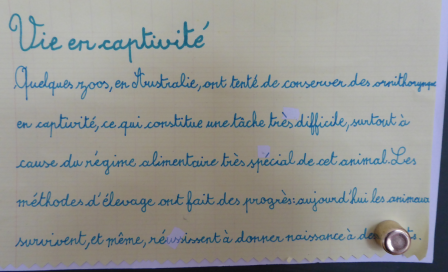 Vie en captivité
Quelques zoos, en Australie, ont tenté de conserver des ornithorynque
en captivité, ce qui constitue une tâche très difficile, surtout à
cause du régime alimentaire très spécial de cet animal. Les
méthodes d'élevage ont fait des progrès: aujourd'hui les animaux
survivent, et même, réussissent à donner naissance à